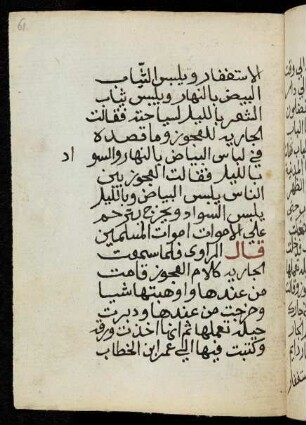 61
الاستغفار ويلبس الثياب
البيض بالنهار ويلبس ثياب
الشعر بالليل لسياحته فقالت
الجاريه للعجوز وما قصده
في لباس البياض بالنهار والسواد
بالليل فقالت العجوز بين
الناس يلبس البياض وبالليل
يلبس السواد ويخرج يترحم
علي الاموات اموات المسلمين
قال الراوي فلما سمعت
الجاريه كلام العجوز قامت
من عندها واوهبتها شيا
وخرجت من عندها ودبرت
حيلة تعملها ثم انها اخذت ورقه
وكتبت فيها الي عمر ابن الخطاب